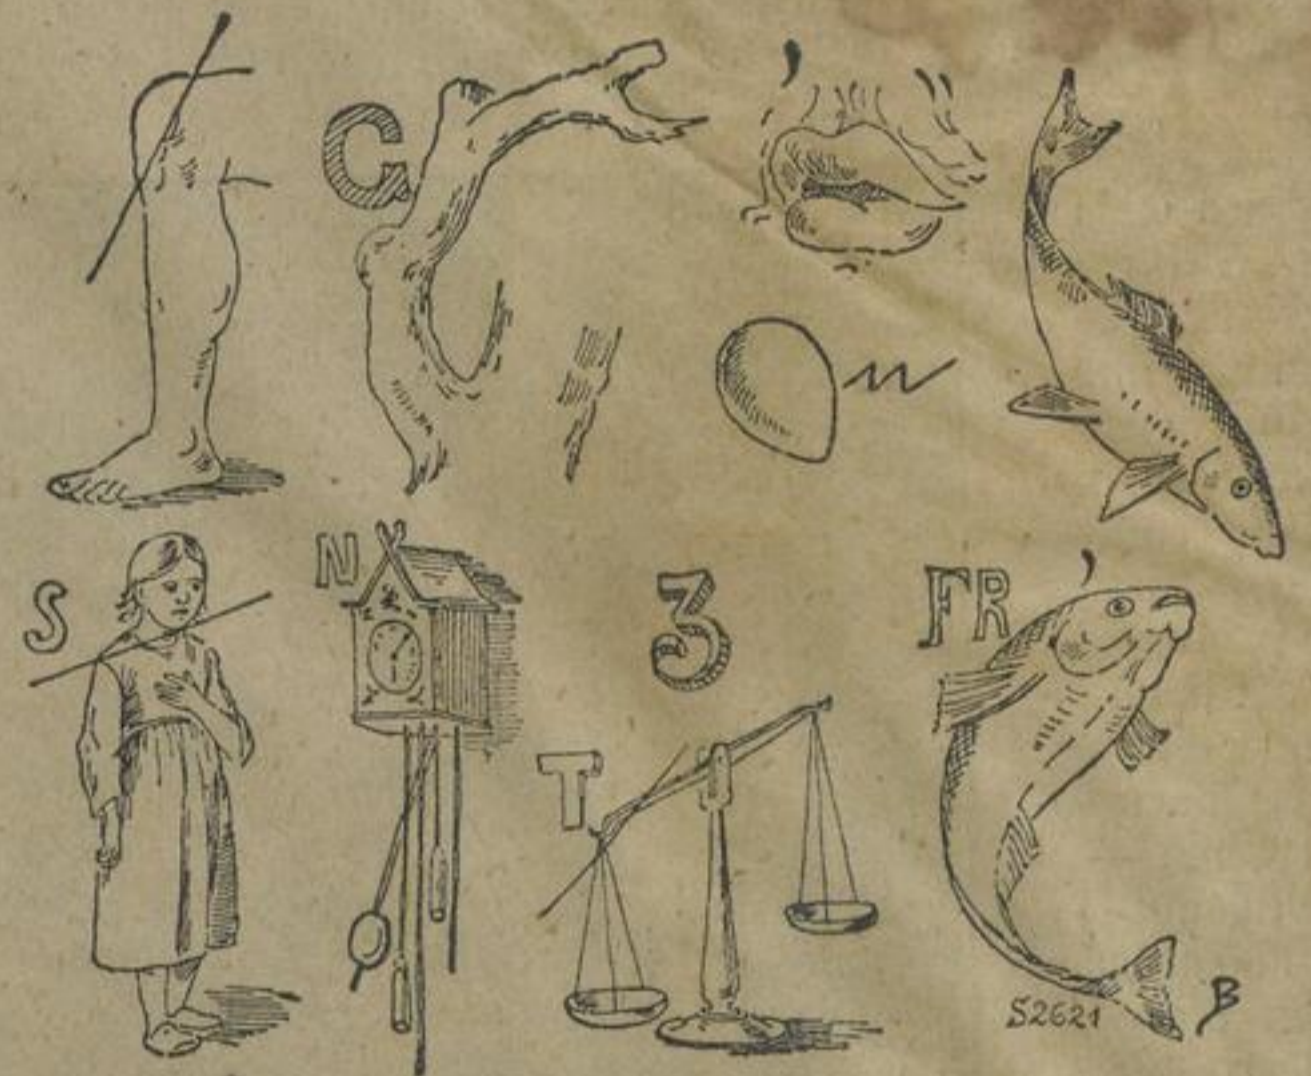 G , ,,
S N 3 FR ,
T
S2621 B